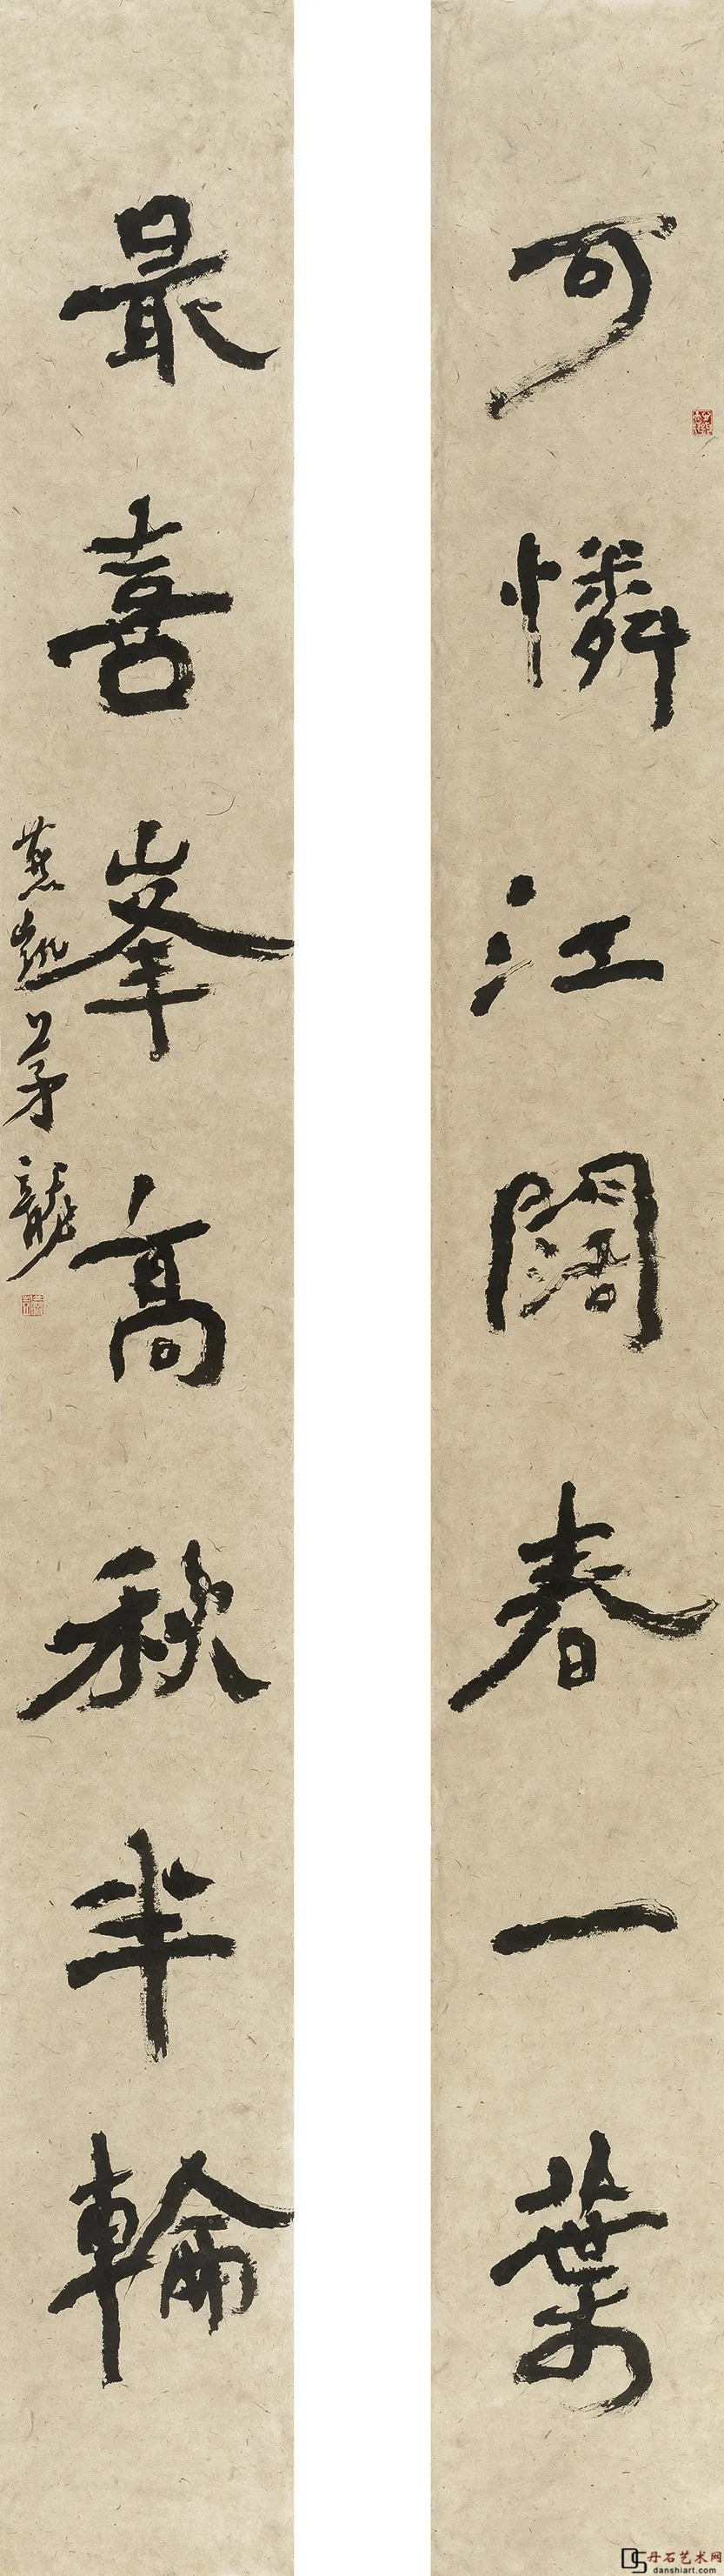 可憐江闊春一葉
最喜峯高秋半輪
燕超以茅龍
丹石艺术网
danshiart.com